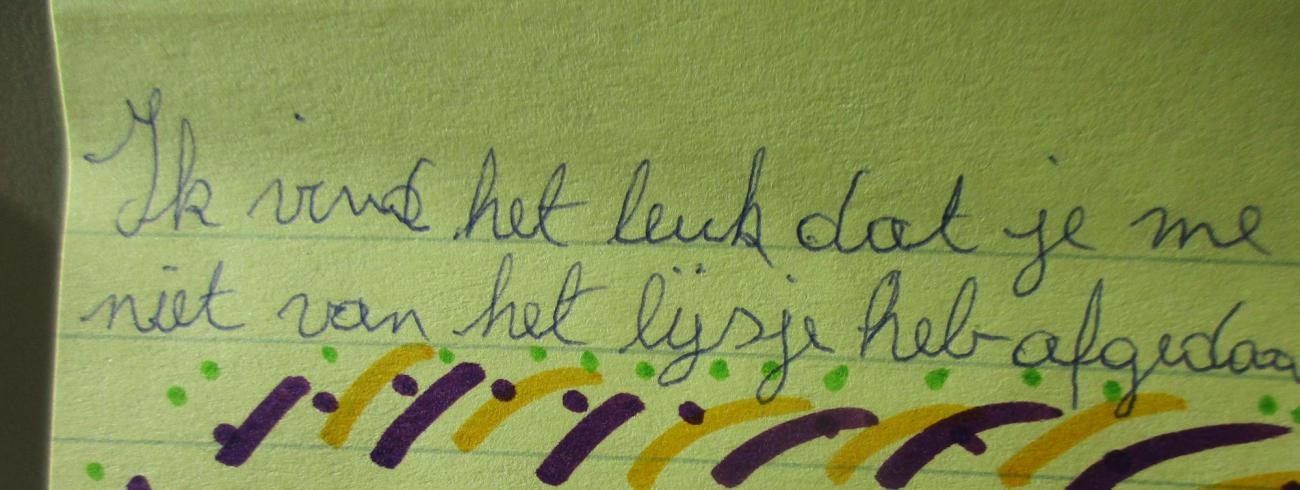 Ik vind het leuk dat je me
niet van het lijsje heb afgedaa